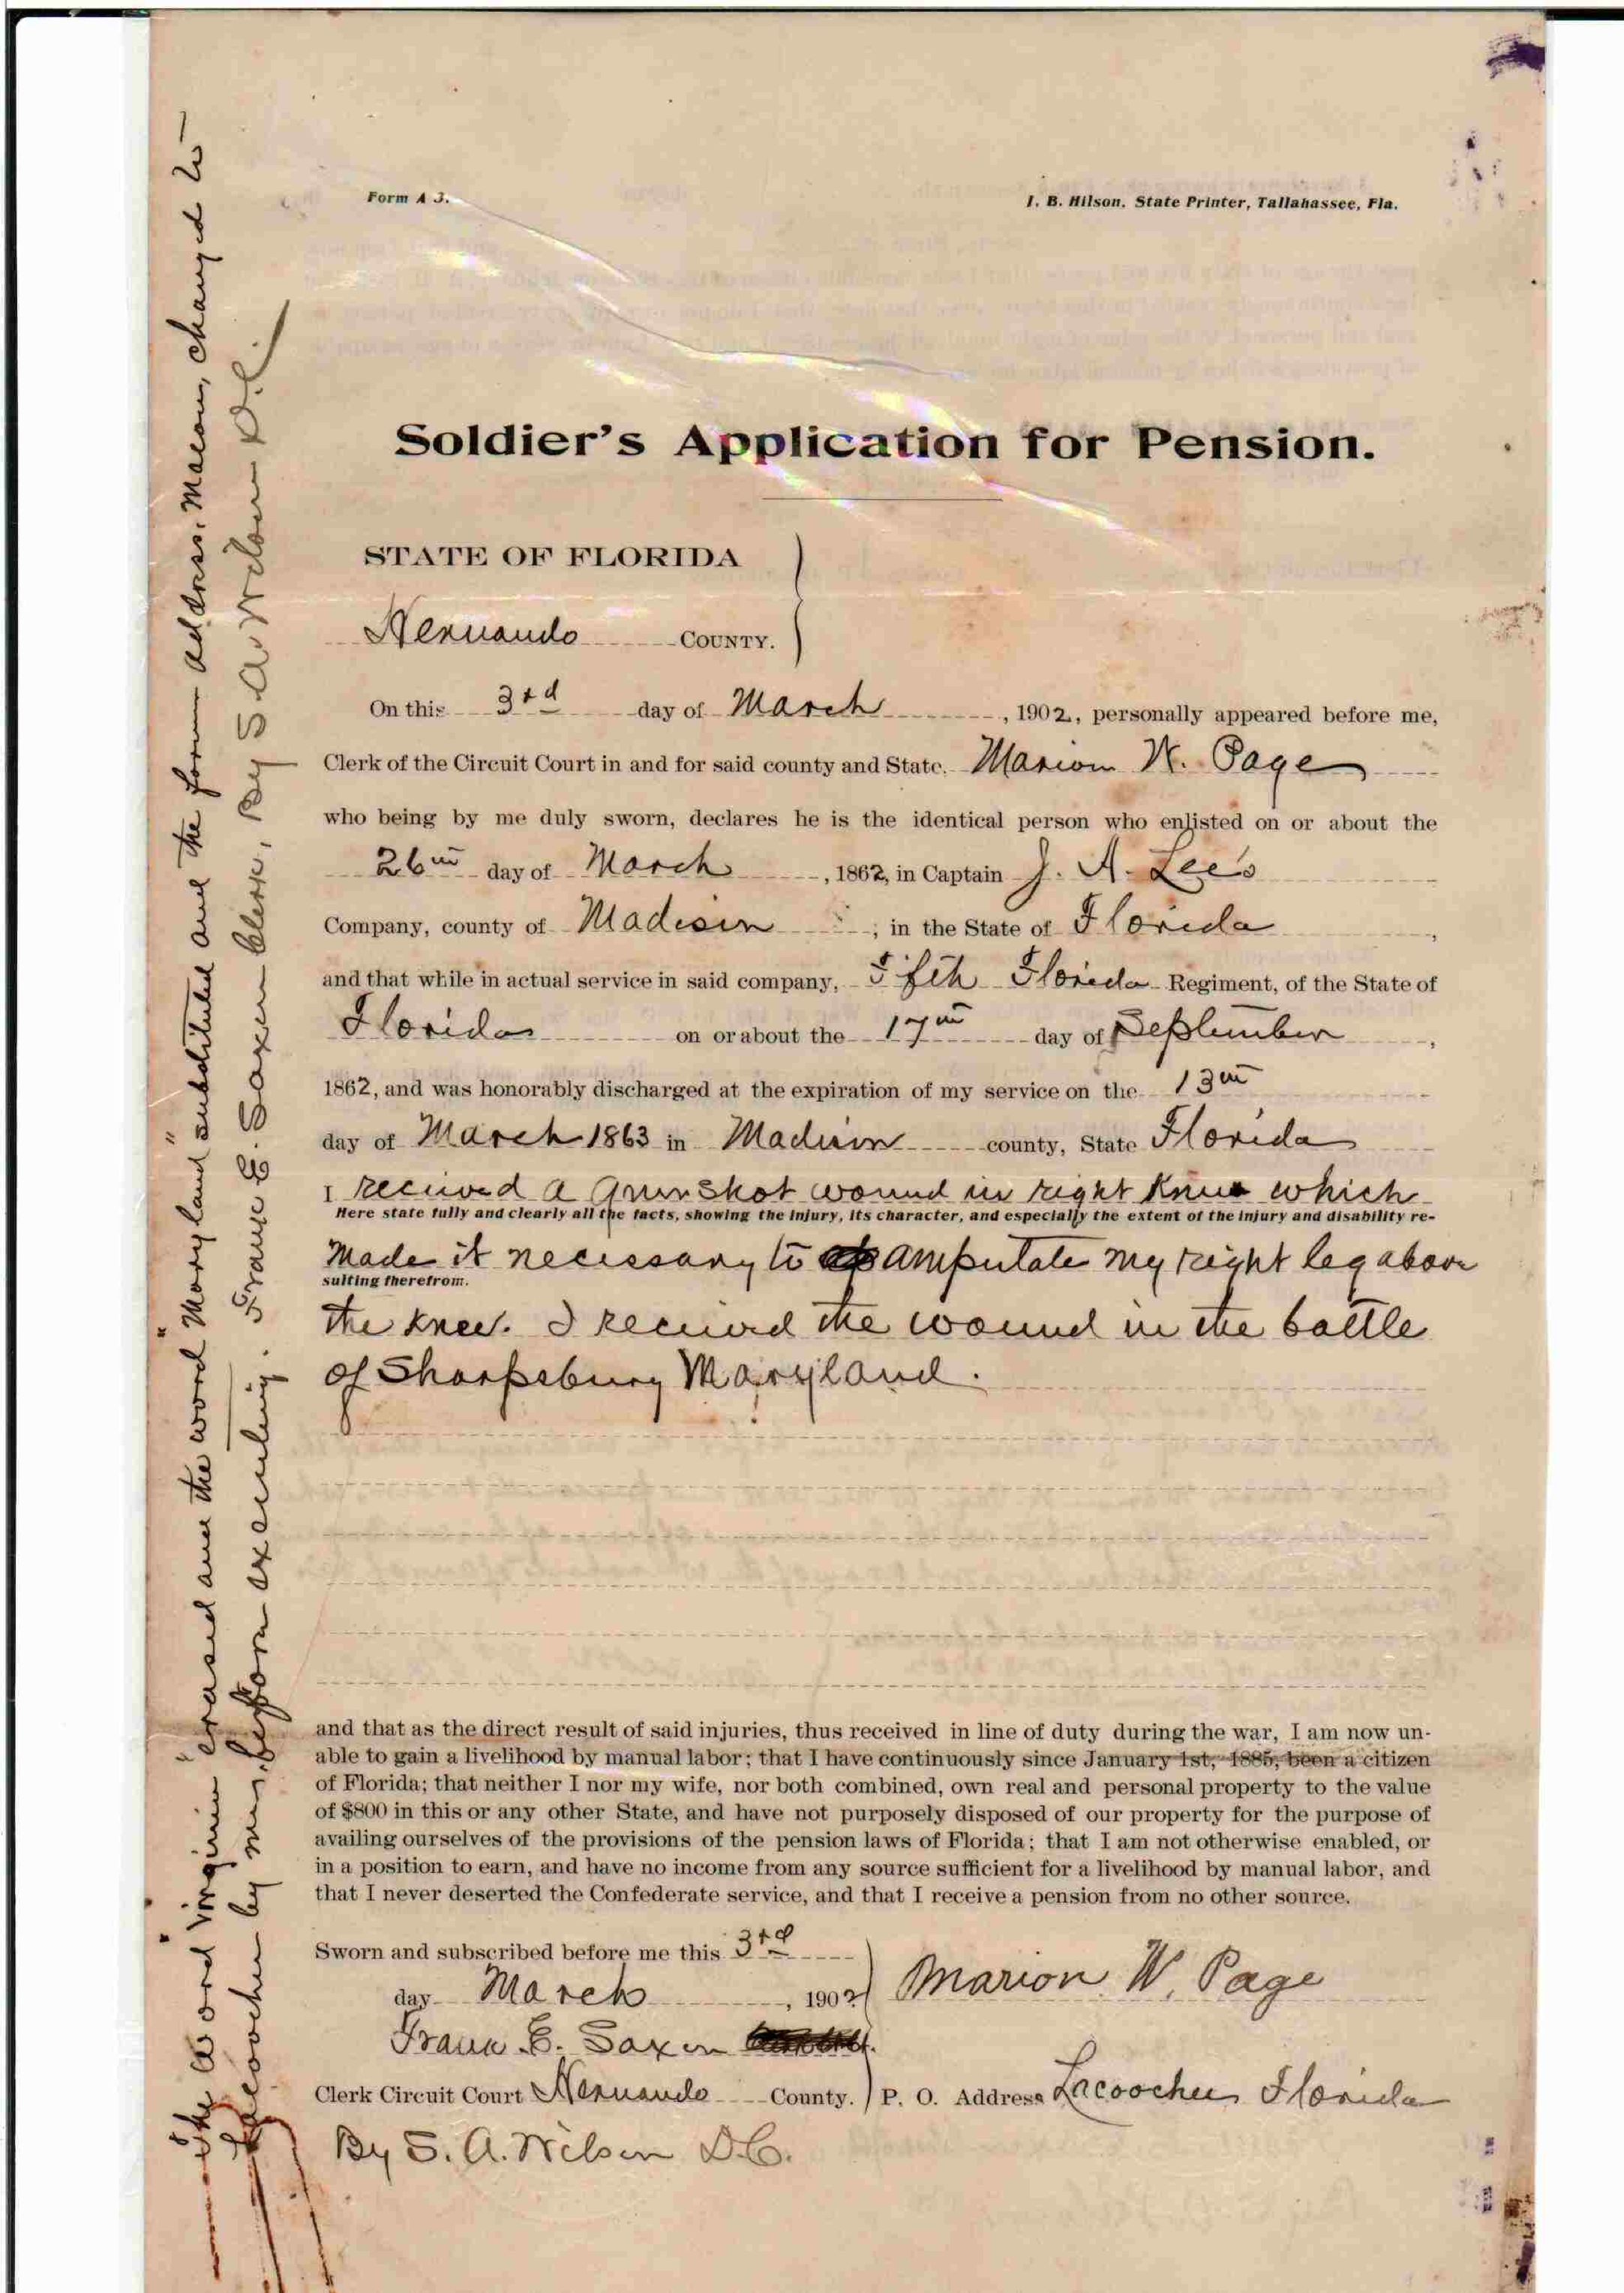 Form A 3.
I. B. Hilson, State Printer, Tallahassee, Fla.
Soldier's Application for Pension.
STATE OF FLORIDA
Hernando COUNTY.
On this 3rd day of March, 1902, personally appeared before me,
Clerk of the Circuit Court in and for said county and State, Marion W. Page
who being by me duly sworn, declares he is the identical person who enlisted on or about the
26th day of March, 1862, in Captain J. A. Lee's
Company, county of Madison; in the State of Florida,
and that while in actual service in said company, Fifth Florida Regiment, of the State of
Florida on or about the 17th day of September,
1862, and was honorably discharged at the expiration of my service on the 13th
day of March 1863 in Madison county, State Florida
I received a gun shot wound in right knee which
Here state fully and clearly all the facts, showing the injury, its character, and especially the extent of the injury and disability re-
made it necessary to amputate my right leg above
sulting therefrom.
the knee. I received the wound in the battle
of Sharpsburg Maryland.
and that as the direct result of said injuries, thus received in line of duty during the war, I am now un-
able to gain a livelihood by manual labor; that I have continuously since January 1st, 1885, been a citizen
of Florida; that neither I nor my wife, nor both combined, own real and personal property to the value
of $800 in this or any other State, and have not purposely disposed of our property for the purpose of
availing ourselves of the provisions of the pension laws of Florida; that I am not otherwise enabled, or
in a position to earn, and have no income from any source sufficient for a livelihood by manual labor, and
that I never deserted the Confederate service, and that I receive a pension from no other source.
Sworn and subscribed before me this 3rd
day March, 1902
Marion W. Page
Frank E. Saxon
Clerk Circuit Court Hernando County.
P. O. Address Lacoochee Florida
By S. A. Wilson D.C.
The word "Virginia" erased and the word "Maryland" substituted and the former address, Macon, changed to
Lacoochee by me, before executing. Frank E. Saxon Clerk, By S. A. Wilson D.C.